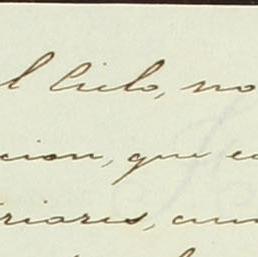 l Cielo, no
cion, que e
riares, aun